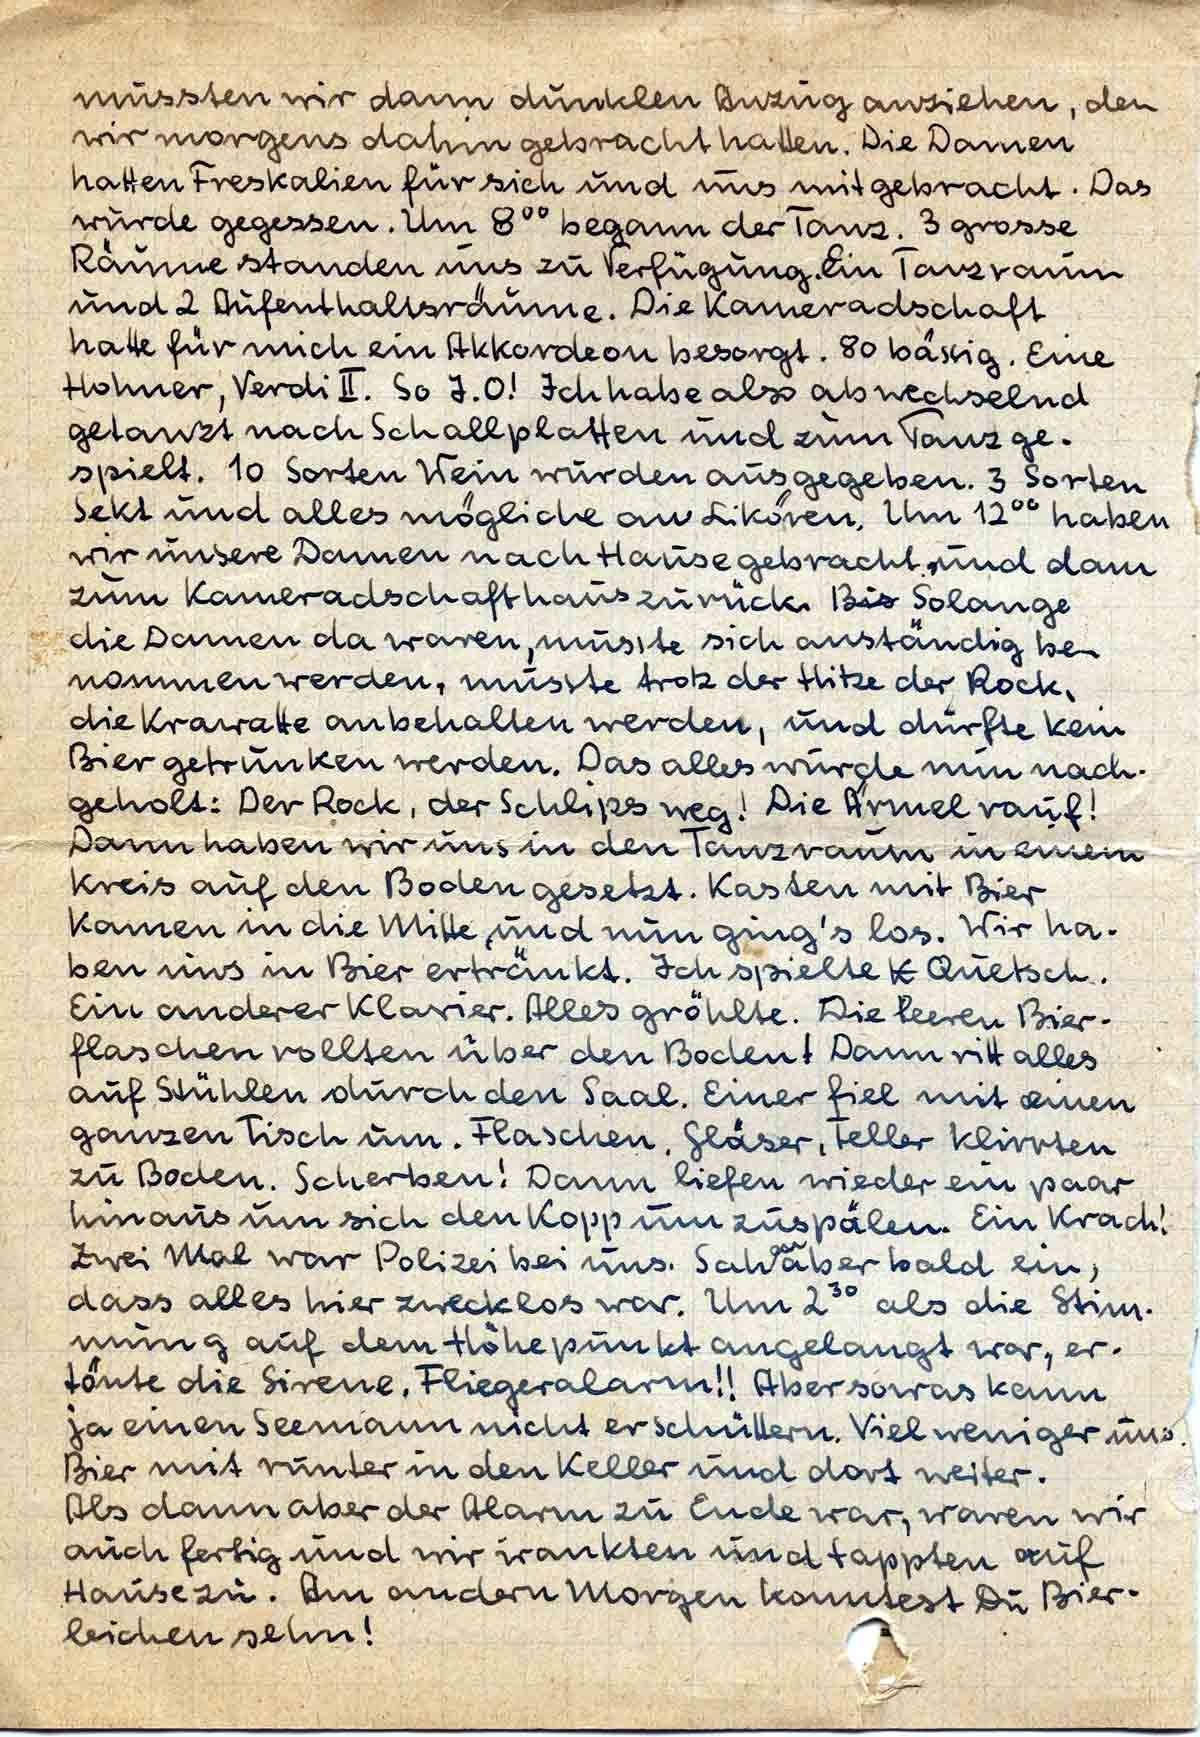 mussten wir dann dunklen Anzug anziehen, den
wir morgens dahin gebracht hatten. Die Damen
hatten Freskalien für sich und uns mitgebracht. Das
wurde gegessen. Um 8⁰⁰ begann der Tanz. 3 grosse
Räume standen uns zu Verfügung. Ein Tanzraum
und 2 Aufenthaltsräume. Die Kameradschaft
hatte für mich ein Akkordeon besorgt. 80 bässig. Eine
Hohner, Verdi II. So I.O! Ich habe also abwechselnd
getanzt nach Schallplatten und zum Tanz ge-
spielt. 10 Sorten Wein wurden ausgegeben. 3 Sorten
Sekt und alles mögliche an Likören. Um 12⁰⁰ haben
wir unsere Damen nach Hause gebracht, und dann
zum Kameradschafthaus zurück. Bis Solange
die Damen da waren, musste sich anständig be-
nommen werden, musste trotz der Hitze der Rock,
die Krawatte anbehalten werden, und durfte kein
Bier getrunken werden. Das alles wurde nun nach-
geholt: Der Rock, der Schlips weg! Die Ärmel rauf!
Dann haben wir uns in den Tanzraum in einem
Kreis auf den Boden gesetzt. Kasten mit Bier
kamen in die Mitte, und nun ging's los. Wir ha-
ben uns in Bier ertränkt. Ich spielte K Quetsch.
Ein anderer Klavier. Alles gröhlte. Die leeren Bier-
flaschen rollten über den Boden! Dann ritt alles
auf Stühlen durch den Saal. Einer fiel mit einen
ganzen Tisch um. Flaschen, Gläser, Teller klirrten
zu Boden. Scherben! Dann liefen wieder ein paar
hinaus um sich den Kopp umzuspälen. Ein Krach!
Zwei Mal war Polizei bei uns. Sah aber bald ein,
dass alles hier zwecklos war. Um 2³⁰ als die Stim-
mung auf dem Höhepunkt angelangt war, er-
tönte die Sirene. Fliegeralarm!! Aber sowas kann
ja einen Seemann nicht erschüttern. Viel weniger uns.
Bier mit runter in den Keller und dort weiter.
Als dann aber der Alarm zu Ende war, waren wir
auch fertig und wir wankten und tappten auf
Hause zu. Am andern Morgen konntest Du Bier-
leichen sehn!